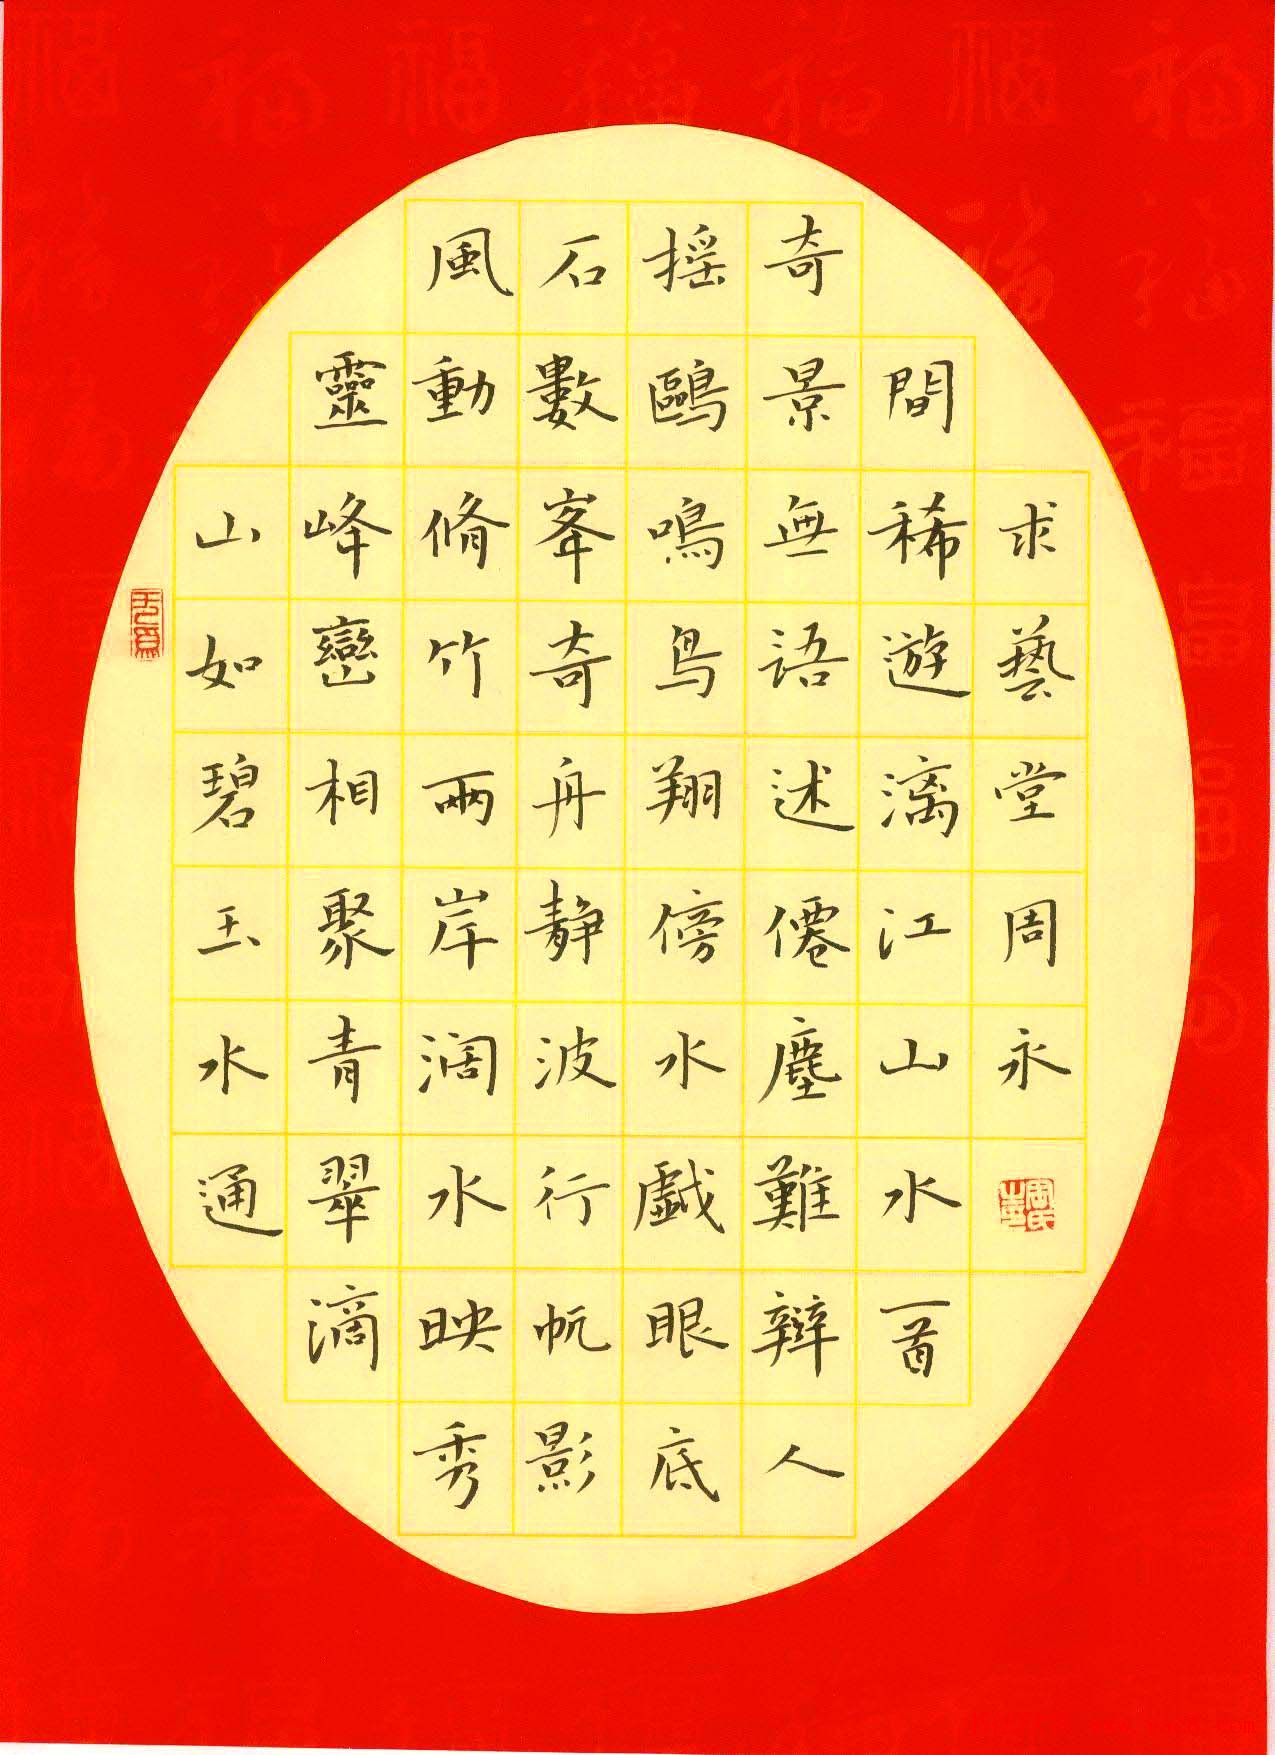 山如碧玉水通
靈峰巒相聚青翠滴
風動脩竹兩岸濶水映秀
石數峯奇舟静波行帆影
摇鷗鳴鳥翔傍水戯眼底
奇景無語述僊塵難辯人
間稀遊漓江山水一首
求藝堂周永